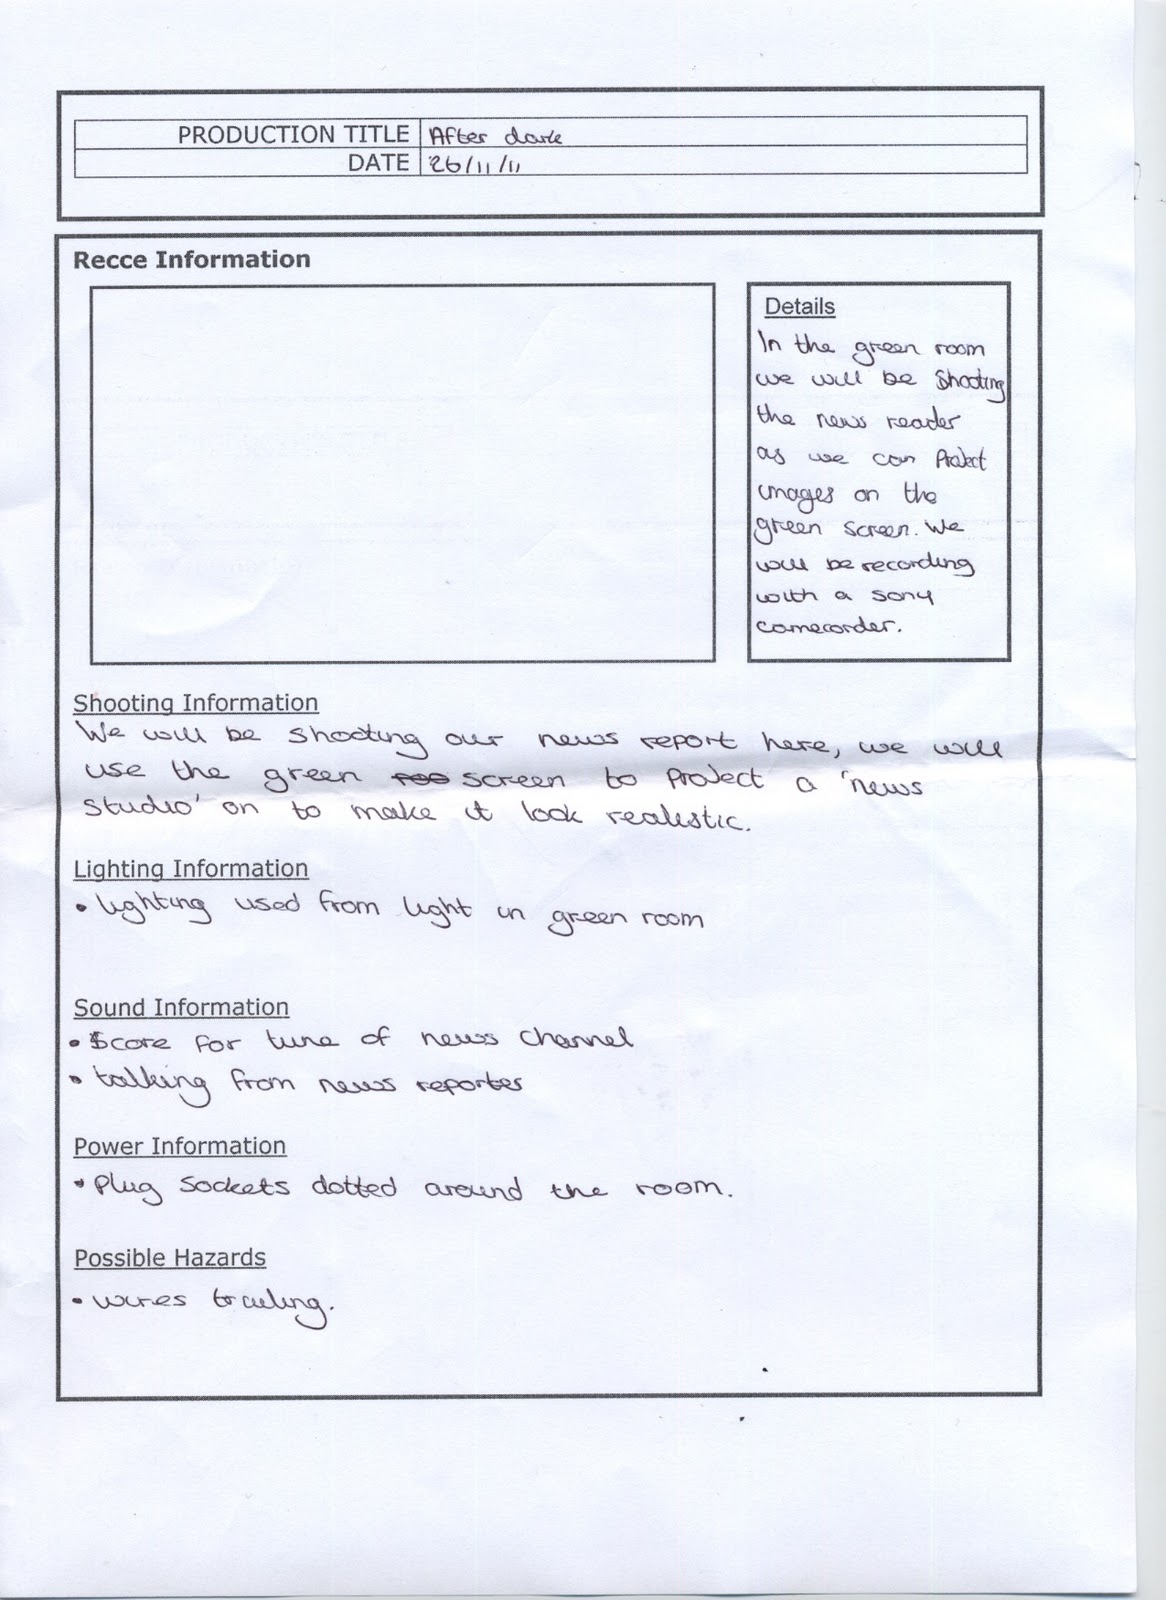 PRODUCTION TITLE After dark
DATE 26/11/11
Recce Information
Details
In the green room
we will be shooting
the news reader
as we can Project
images on the
green screen. We
will be recording
with a sony
camecorder.
Shooting Information
We will be shooting our news report here, we will
use the green roo screen to Project a 'news
studio' on to make it look realistic.
Lighting Information
• lighting used from light in green room
Sound Information
• Score for tune of news channel
• talking from news reporter
Power Information
• Plug sockets dotted around the room.
Possible Hazards
• wires trailing.